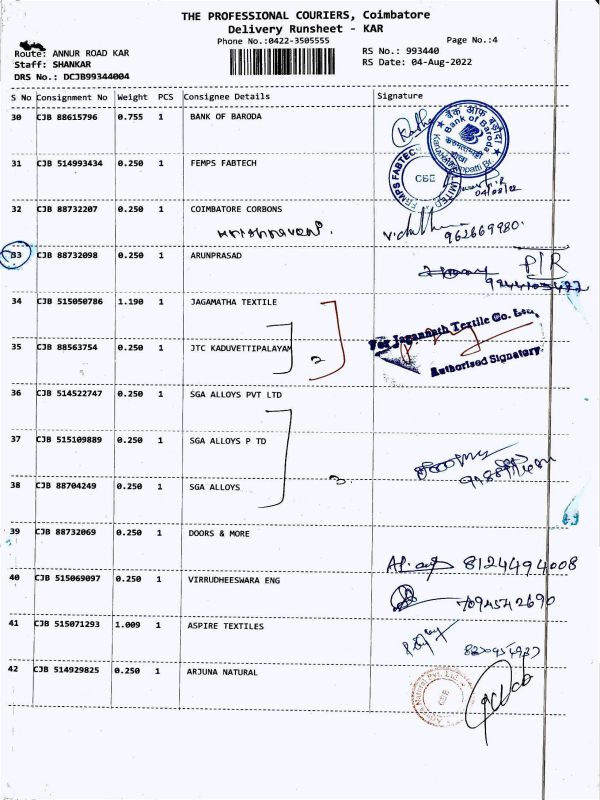 THE PROFESSIONAL COURIERS, Coimbatore
Delivery Runsheet - KAR
Phone No.:0422-3505555 Page No.:4
Route: ANNUR ROAD KAR RS No.: 993440
Staff: SHANKAR RS Date: 04-Aug-2022
DRS No.: DCJB99344004
S No Consignment No Weight PCS Consignee Details Signature
30 CJB 88615796 0.755 1 BANK OF BARODA
बैंक ऑफ़ बड़ौदा
Bank of Baroda
31 CJB 514993434 0.250 1 FEMPS FABTECH
FEMPS FABTECH LIMITED
CBE
04/08/22
32 CJB 88732207 0.250 1 COIMBATORE CORBONS
962669980.
33 CJB 88732098 0.250 1 ARUNPRASAD P/R
34 CJB 515050786 1.190 1 JAGAMATHA TEXTILE
For Jagannath Textile Co. Ltd.,
35 CJB 88563754 0.250 1 JTC KADUVETTIPALAYAM 2
Authorised Signatory.
36 CJB 514522747 0.250 1 SGA ALLOYS PVT LTD
37 CJB 515109889 0.250 1 SGA ALLOYS P TD
38 CJB 88704249 0.250 1 SGA ALLOYS 3
39 CJB 88732069 0.250 1 DOORS & MORE
8124494008
40 CJB 515069097 0.250 1 VIRRUDHEESWARA ENG
7094542690
41 CJB 515071293 1.009 1 ASPIRE TEXTILES
42 CJB 514929825 0.250 1 ARJUNA NATURAL
CBE